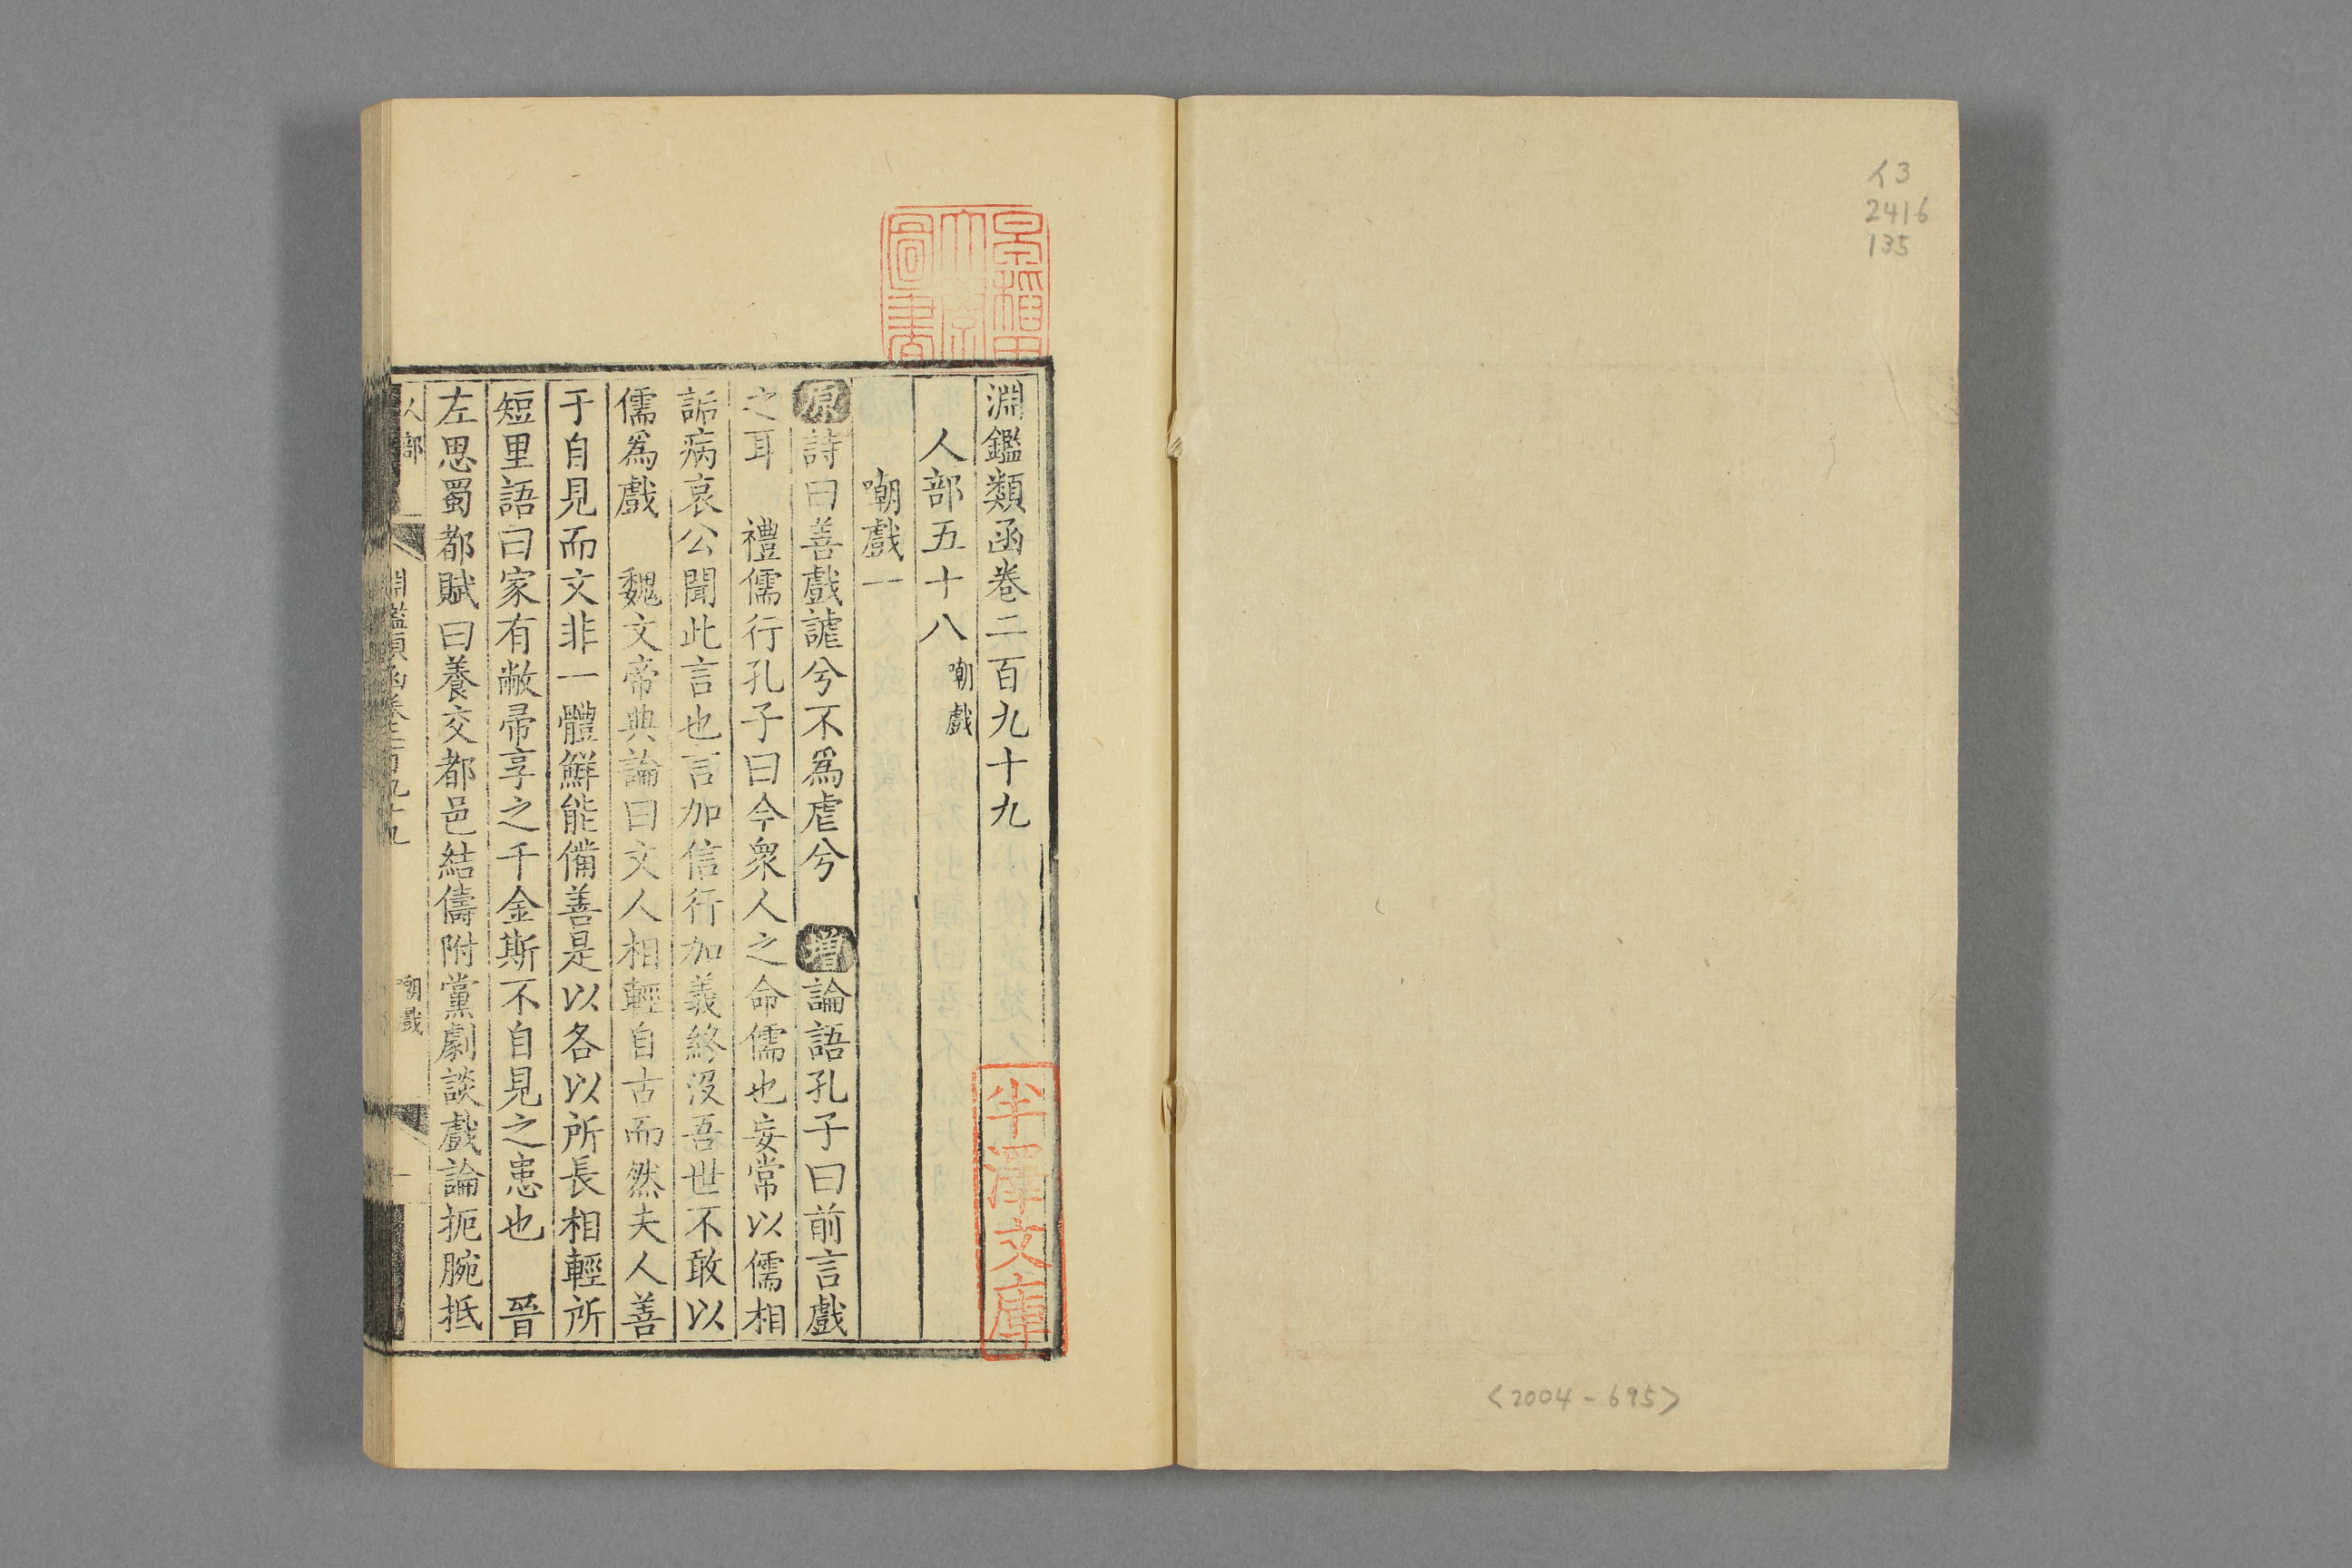 イ3
2416
135
<2004-695>
早稲田
大學
圖書
淵鑑類函卷二百九十九
半澤文庫
人部五十八嘲戲
嘲戲一
原詩曰善戲謔兮不爲虐兮　增論語孔子曰前言戲
之耳　禮儒行孔子曰今衆人之命儒也妄常以儒相
詬病哀公聞此言也言加信行加義終沒吾世不敢以
儒爲戲　魏文帝典論曰文人相輕自古而然夫人善
于自見而文非一體鮮能備善是以各以所長相輕所
短里語曰家有敝帚享之千金斯不自見之患也　晉
左思蜀都賦曰養交都邑結儔附黨劇談戲論扼腕抵
人部　一　淵鑑類函卷二百九十九　嘲戲　一